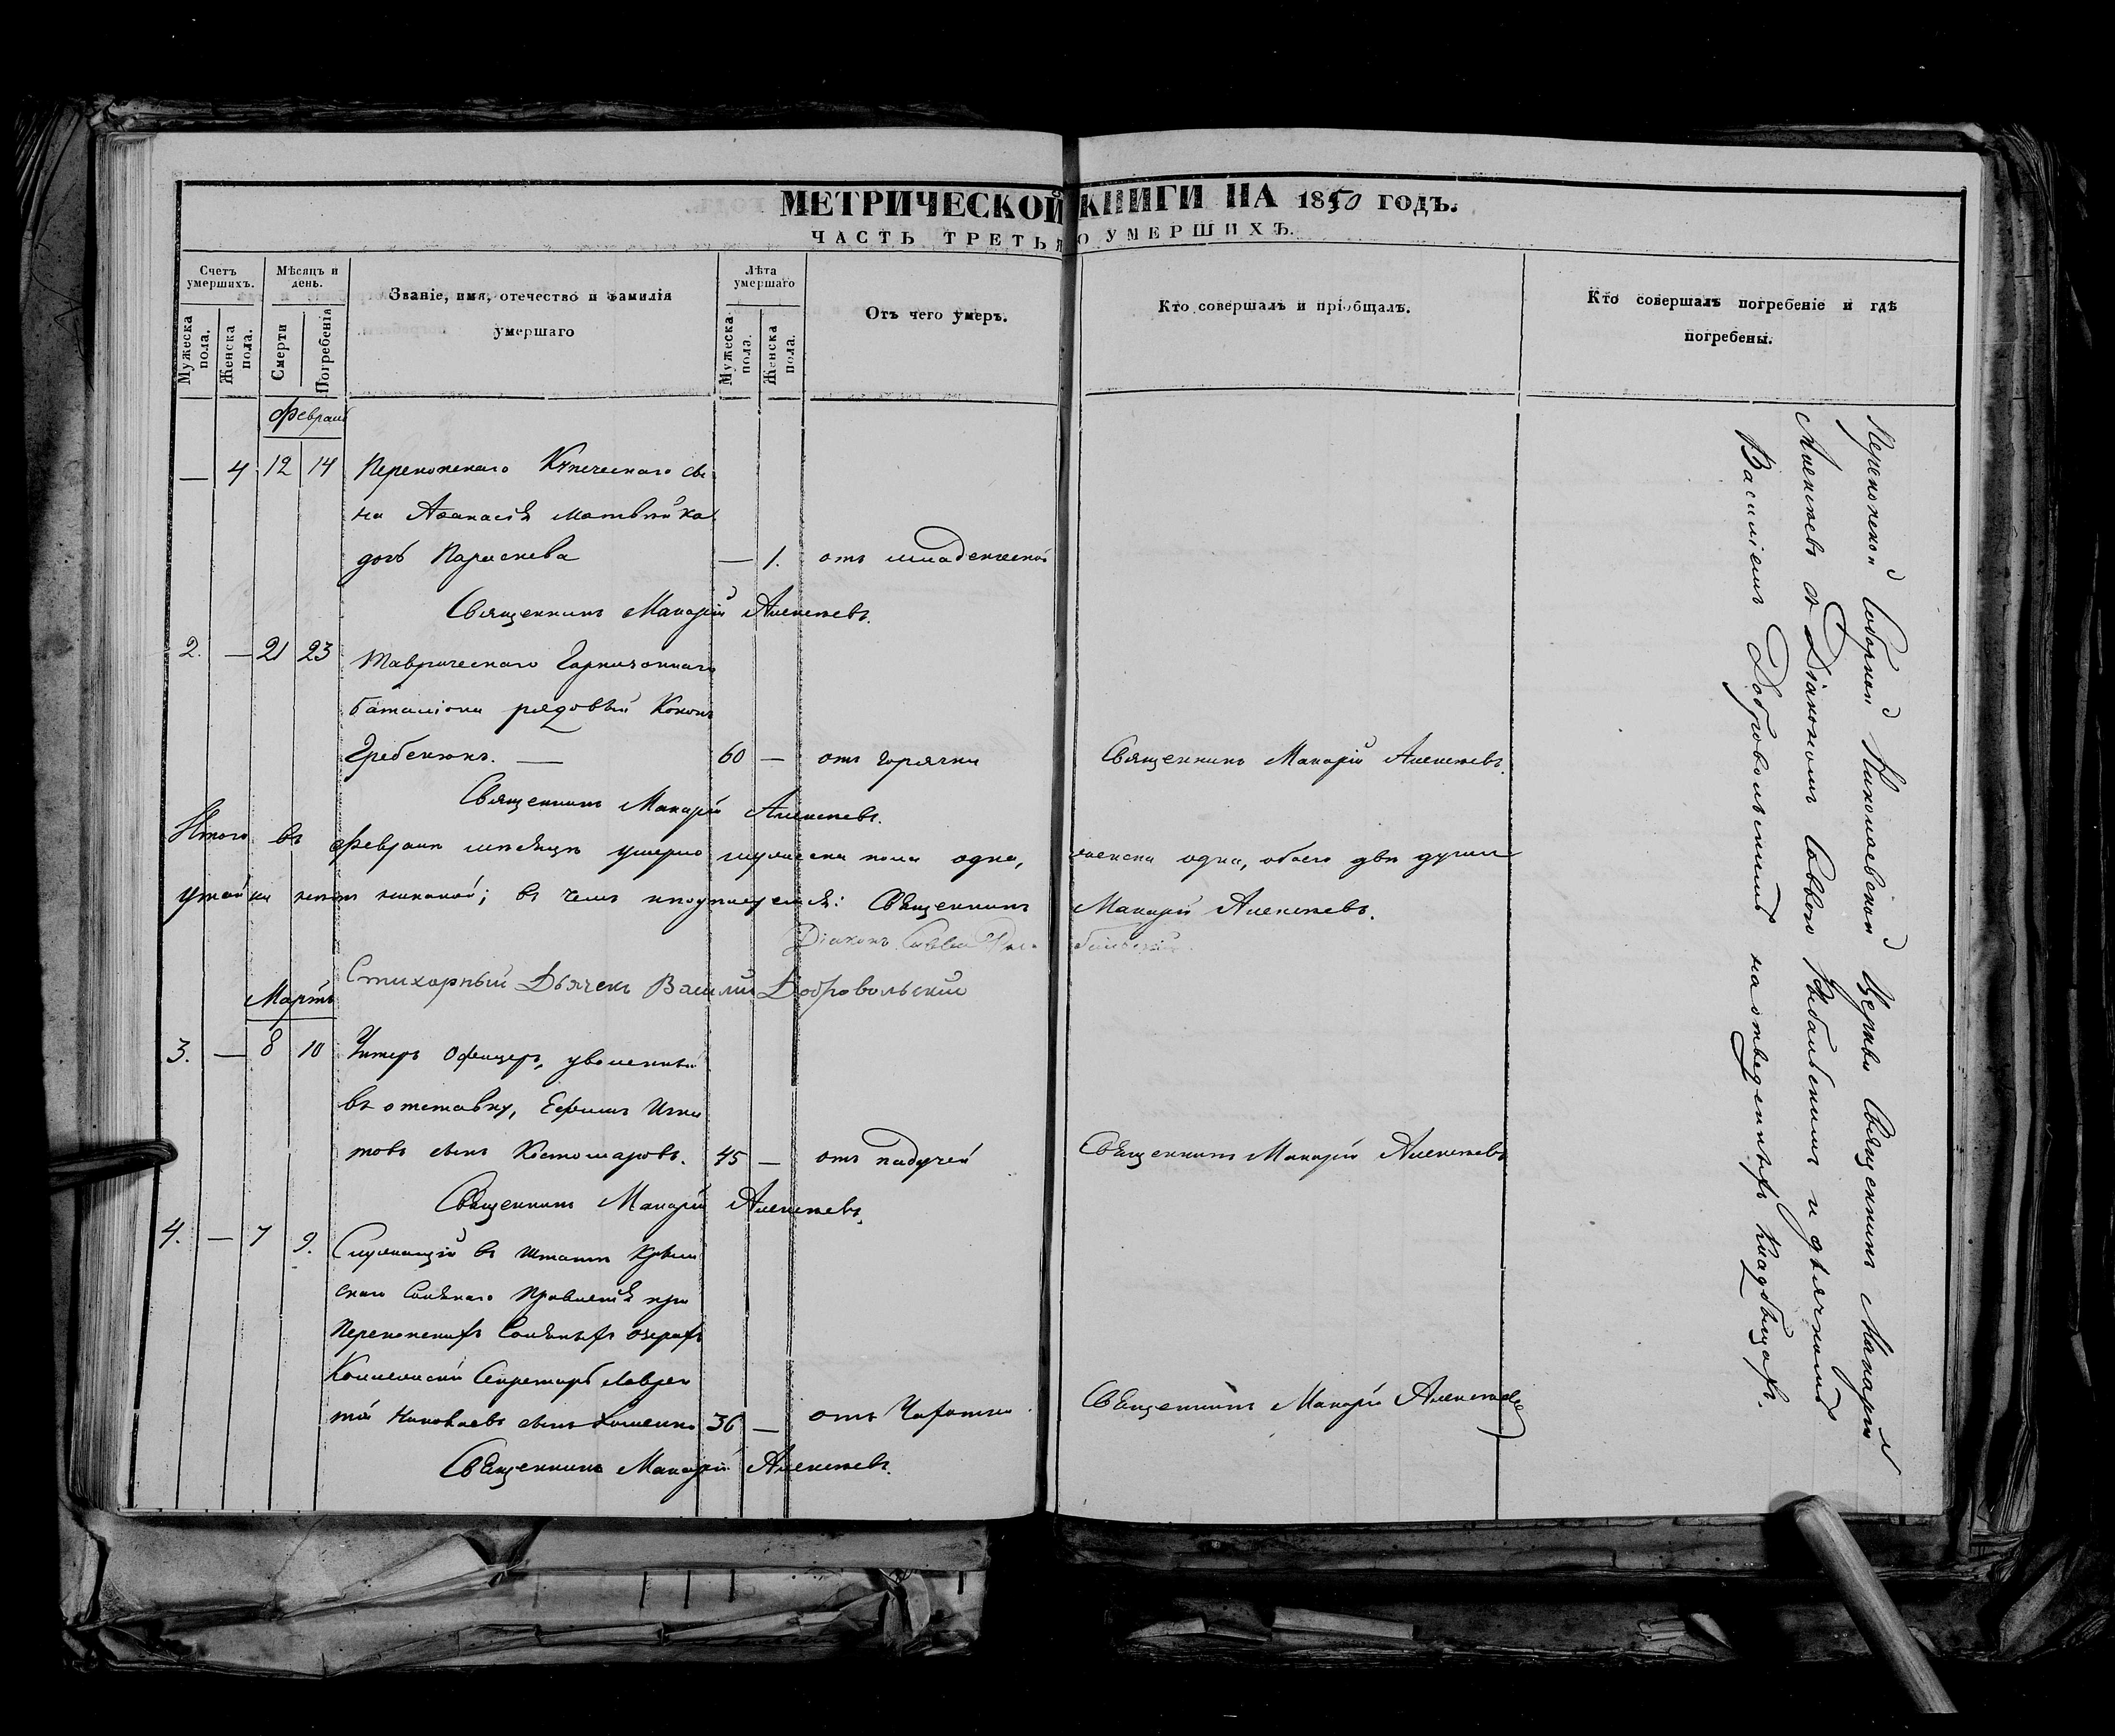 МЕТРИЧЕСКОЙ КНИГИ НА 1850 ГОДЪ.
ЧАСТЬ ТРЕТЬЯ О УМЕРШИХЪ.
Счетъ умершихъ.
Мѣсяцъ и день.
Званіе, имя, отечество и фамилія умершаго
Лѣта умершаго
Отъ чего умеръ.
Кто совершалъ и пріобщалъ.
Кто совершалъ погребеніе и гдѣ погребены.
Мужеска пола.
Женска пола.
Смерти
Погребенія
Мужеска пола.
Женска пола.
Февраль
— 4 12 14 Перекопскаго Купеческаго сы-
на Аѳанасія
дочь Параскева — 1. отъ младенческой
Священникъ Макарій Алексѣевъ.
2. — 21 23 Таврическаго Гарнизоннаго
баталіона рядовый Кононъ
Гребенюкъ. — 60 — отъ горячки Священникъ Макарій Алексѣевъ.
Священникъ Макарій Алексѣевъ.
Итого въ Февралѣ мѣсяцѣ умерло мужеска пола одна, женска одна, обоего двѣ души
утайки нѣтъ никакой; въ чемъ и подписуемся: Священникъ Макарій Алексѣевъ.
Діаконъ Савва
Стихарный Дьячекъ Василій Добровольскій
Мартъ
3. — 8 10 Унтеръ Офицеръ, уволенный
въ отставку, Ефимъ
сынъ Костомаровъ. 45 — отъ падучей Священникъ Макарій Алексѣевъ
Священникъ Макарій Алексѣевъ.
4. — 7 9. Служащій въ штатѣ Крым-
скаго Солянаго Правленія при
Перекопскихъ Соляныхъ озерахъ
Коллежскій Секретарь Лаврен-
тій Николаевъ сынъ 36 — отъ Чахотки. Священникъ Макарій Алексѣевъ
Священникъ Макарій Алексѣевъ.
Перекопской Соборной Николаевской Церкви Священникъ Макарій
Алексѣевъ съ Діакономъ Саввою и дьячкомъ
Василіемъ Добровольскимъ на отведенныхъ кладбищахъ.